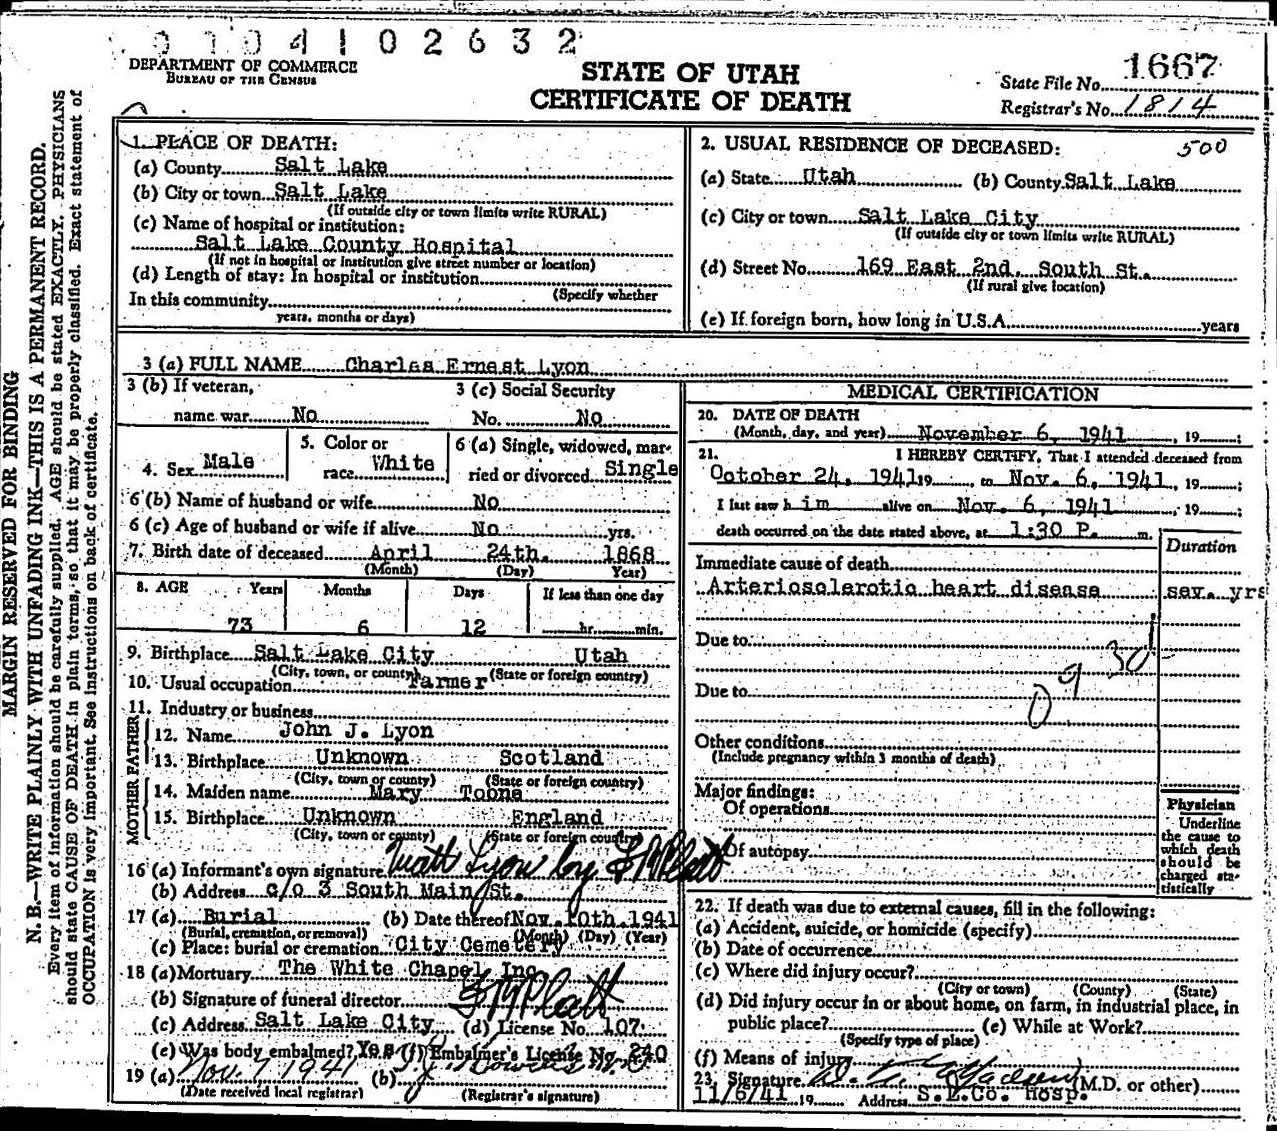 0104102632
DEPARTMENT OF COMMERCE
BUREAU OF THE CENSUS
STATE OF UTAH
CERTIFICATE OF DEATH
State File No. 1667
Registrar's No. 1814
MARGIN RESERVED FOR BINDING
N. B.—WRITE PLAINLY WITH UNFADING INK—THIS IS A PERMANENT RECORD.
Every item of information should be carefully supplied. AGE should be stated EXACTLY. PHYSICIANS
should state CAUSE OF DEATH in plain terms, so that it may be properly classified. Exact statement of
OCCUPATION is very important. See instructions on back of certificate.
1. PLACE OF DEATH:
(a) County Salt Lake
(b) City or town Salt Lake
(If outside city or town limits write RURAL)
(c) Name of hospital or institution:
Salt Lake County Hospital
(If not in hospital or institution give street number or location)
(d) Length of stay: In hospital or institution
(Specify whether
In this community
years, months or days)
2. USUAL RESIDENCE OF DECEASED: 500
(a) State Utah (b) County Salt Lake
(c) City or town Salt Lake City
(If outside city or town limits write RURAL)
(d) Street No. 169 East 2nd. South St.
(If rural give location)
(e) If foreign born, how long in U.S.A. years
3 (a) FULL NAME Charles Ernest Lyon
3 (b) If veteran,
name war No
3 (c) Social Security
No. No
4. Sex Male
5. Color or
race White
6 (a) Single, widowed, mar-
ried or divorced Single
6 (b) Name of husband or wife No
6 (c) Age of husband or wife if alive No yrs.
7. Birth date of deceased April 24th. 1868
(Month) (Day) Year)
8. AGE Years Months Days If less than one day
73 6 12 hr. min.
9. Birthplace Salt Lake City Utah
(City, town, or county) (State or foreign country)
10. Usual occupation Farmer
11. Industry or business
FATHER
12. Name John J. Lyon
13. Birthplace Unknown Scotland
(City, town or county) (State or foreign country)
MOTHER
14. Maiden name Mary Toone
15. Birthplace Unknown England
(City, town or county) (State or foreign country)
16 (a) Informant's own signature Matt Lyon by
(b) Address c/o 3 South Main St.
17 (a) Burial (b) Date thereof Nov. 10th 1941
(Burial, cremation, or removal) (Month) (Day) (Year)
(c) Place: burial or cremation City Cemetery
18 (a) Mortuary The White Chapel Inc
(b) Signature of funeral director
(c) Address Salt Lake City (d) License No. 107
(e) Was body embalmed? Yes (f) Embalmer's License No. 240
19 (a) Nov. 7 1941 (b)
(Date received local registrar) (Registrar's signature)
MEDICAL CERTIFICATION
20. DATE OF DEATH
(Month, day, and year) November 6, 1941, 19 ;
21. I HEREBY CERTIFY, That I attended deceased from
October 24, 1941 19 , to Nov. 6, 1941, 19 ;
I last saw h im alive on Nov. 6, 1941, 19 ;
death occurred on the date stated above, at 1:30 P. m.
Duration
Immediate cause of death
Arteriosclerotic heart disease sev. yrs
Due to
Due to
Other conditions
(Include pregnancy within 3 months of death)
Major findings:
Of operations
Of autopsy
Physician
Underline
the cause to
which death
should be
charged sta-
tistically
22. If death was due to external causes, fill in the following:
(a) Accident, suicide, or homicide (specify)
(b) Date of occurrence
(c) Where did injury occur?
(City or town) (County) (State)
(d) Did injury occur in or about home, on farm, in industrial place, in
public place? (e) While at Work?
(Specify type of place)
(f) Means of injury
23. Signature (M.D. or other)
11/6/41 19 Address S.L.Co. Hosp.